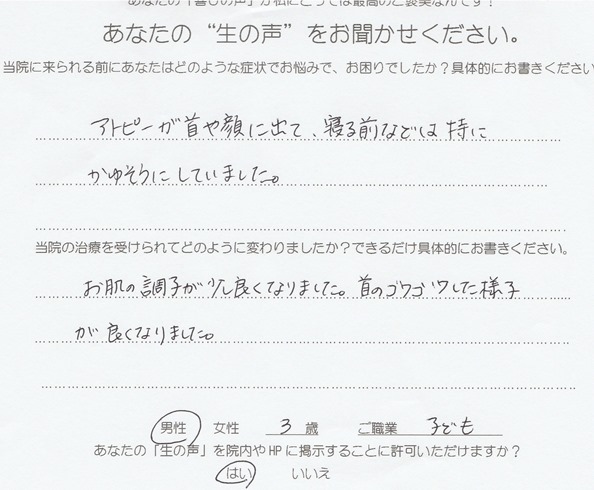 あなたの「喜びの声」が私にとっては最高のご褒美なんです！
あなたの “生の声” をお聞かせください。
当院に来られる前にあなたはどのような症状でお悩みで、お困りでしたか？具体的にお書きください
アトピーが首や顔に出て、寝る前などは特に
かゆそうにしていました。
当院の治療を受けられてどのように変わりましたか？できるだけ具体的にお書きください。
お肌の調子が少し良くなりました。首のゴワゴワした様子
が良くなりました。
男性 女性 3 歳 ご職業 子ども
あなたの「生の声」を院内やHPに掲示することに許可いただけますか？
はい いいえ